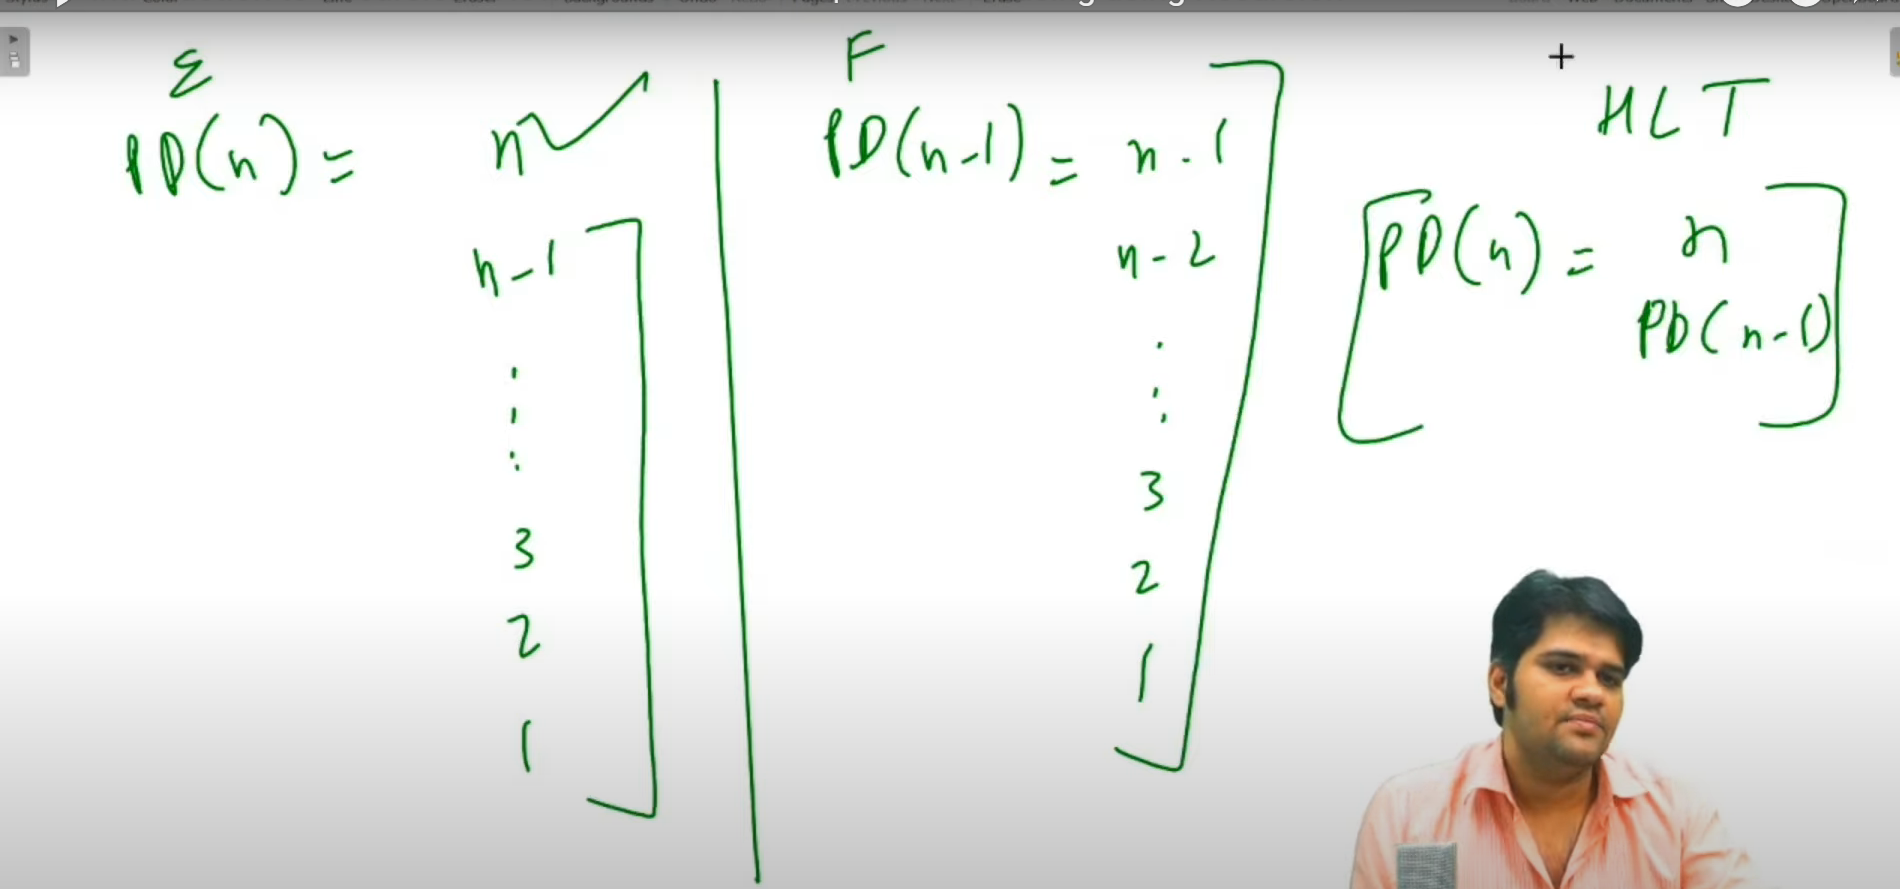 E
PD(n) = n
n-1
.
.
.
3
2
1
F
PD(n-1) = n-1
n-2
.
.
.
3
2
1
HLT
PD(n) = n
PD(n-1)